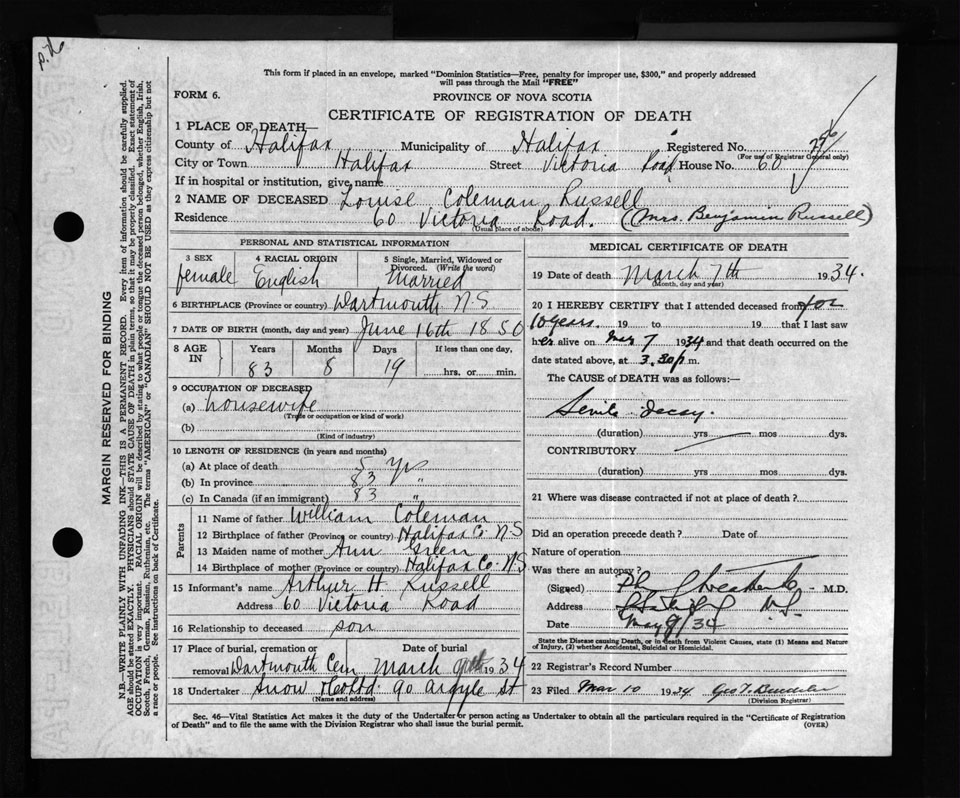 This form if placed in an envelope, marked "Dominion Statistics—Free, penalty for improper use, $300," and properly addressed
will pass through the Mail "FREE"
FORM 6.
PROVINCE OF NOVA SCOTIA
CERTIFICATE OF REGISTRATION OF DEATH
1 PLACE OF DEATH—
County of Halifax Municipality of Halifax Registered No.
(For use of Registrar General only)
City or Town Halifax Street Victoria Road House No. 60
If in hospital or institution, give name
2 NAME OF DECEASED Louise Coleman Russell
Residence 60 Victoria Road. (Mrs. Benjamin Russell)
(Usual place of abode)
PERSONAL AND STATISTICAL INFORMATION
3 SEX
female
4 RACIAL ORIGIN
English
5 Single, Married, Widowed or
Divorced. (Write the word)
Married
6 BIRTHPLACE (Province or country) Dartmouth N.S
7 DATE OF BIRTH (month, day and year) June 16th 1850
8 AGE IN
Years Months Days If less than one day,
83 8 19 hrs. or min.
9 OCCUPATION OF DECEASED
(a) housewife
(Trade or occupation or kind of work)
(b)
(Kind of industry)
10 LENGTH OF RESIDENCE (in years and months)
(a) At place of death 5 yrs
(b) In province 83 "
(c) In Canada (if an immigrant) 83 "
Parents
11 Name of father William Coleman
12 Birthplace of father (Province or country) Halifax Co. N.S
13 Maiden name of mother Ann
14 Birthplace of mother (Province or country) Halifax Co. N.S
15 Informant's name Arthur H. Russell
Address 60 Victoria Road
16 Relationship to deceased son
17 Place of burial, cremation or Date of burial
removal Dartmouth Cem March 1934
18 Undertaker Snow & Co Ltd. 90 Argyle St
(Name and address)
MEDICAL CERTIFICATE OF DEATH
19 Date of death March 7th 1934.
(Month, day and year)
20 I HEREBY CERTIFY that I attended deceased from for
10 years. 19 to 19 that I last saw
her alive on Mar 7 1934 and that death occurred on the
date stated above, at 3.30 p.m.
The CAUSE of DEATH was as follows:—
Senile decay.
(duration) yrs mos dys.
CONTRIBUTORY
(duration) yrs mos dys.
21 Where was disease contracted if not at place of death?
Did an operation precede death? Date of
Nature of operation
Was there an autopsy?
(Signed) M.D.
Address N.S.
Date May 9/34
State the Disease causing Death, or in death from Violent Causes, state (1) Means and Nature
of Injury, (2) whether Accidental, Suicidal or Homicidal.
22 Registrar's Record Number
23 Filed Mar 10 1934 Geo T.
(Division Registrar)
Sec. 46—Vital Statistics Act makes it the duty of the Undertaker or person acting as Undertaker to obtain all the particulars required in the "Certificate of Registration
of Death" and to file the same with the Division Registrar who shall issue the burial permit. (OVER)
MARGIN RESERVED FOR BINDING
N.B.—WRITE PLAINLY WITH UNFADING INK—THIS IS A PERMANENT RECORD. Every item of information should be carefully supplied.
AGE should be stated EXACTLY. PHYSICIANS should STATE CAUSE OF DEATH in plain terms, so that it may be properly classified. Exact statement of
OCCUPATION is very important. RACIAL ORIGIN will be described by stating to what people or tongue the deceased person belonged, whether English, Irish,
Scotch, French, German, Russian, Ruthenian, etc. The terms "AMERICAN" or "CANADIAN" SHOULD NOT BE USED as they express citizenship but not
a race or people. See instructions on back of Certificate.